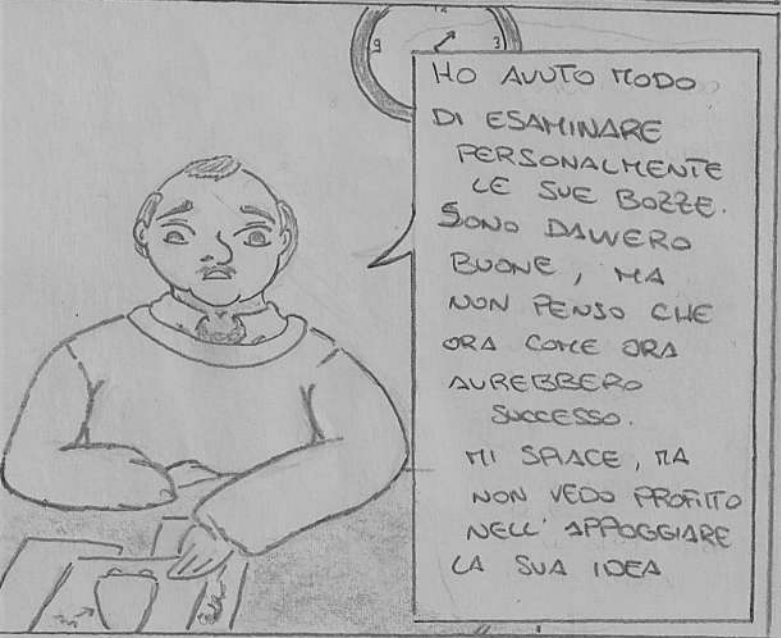 12
9
3
HO AVUTO MODO
DI ESAMINARE
PERSONALMENTE
LE SUE BOZZE.
SONO DAVVERO
BUONE, MA
NON PENSO CHE
ORA COME ORA
AVREBBERO
SUCCESSO.
MI SPIACE, MA
NON VEDO PROFITTO
NELL'APPOGGIARE
LA SUA IDEA